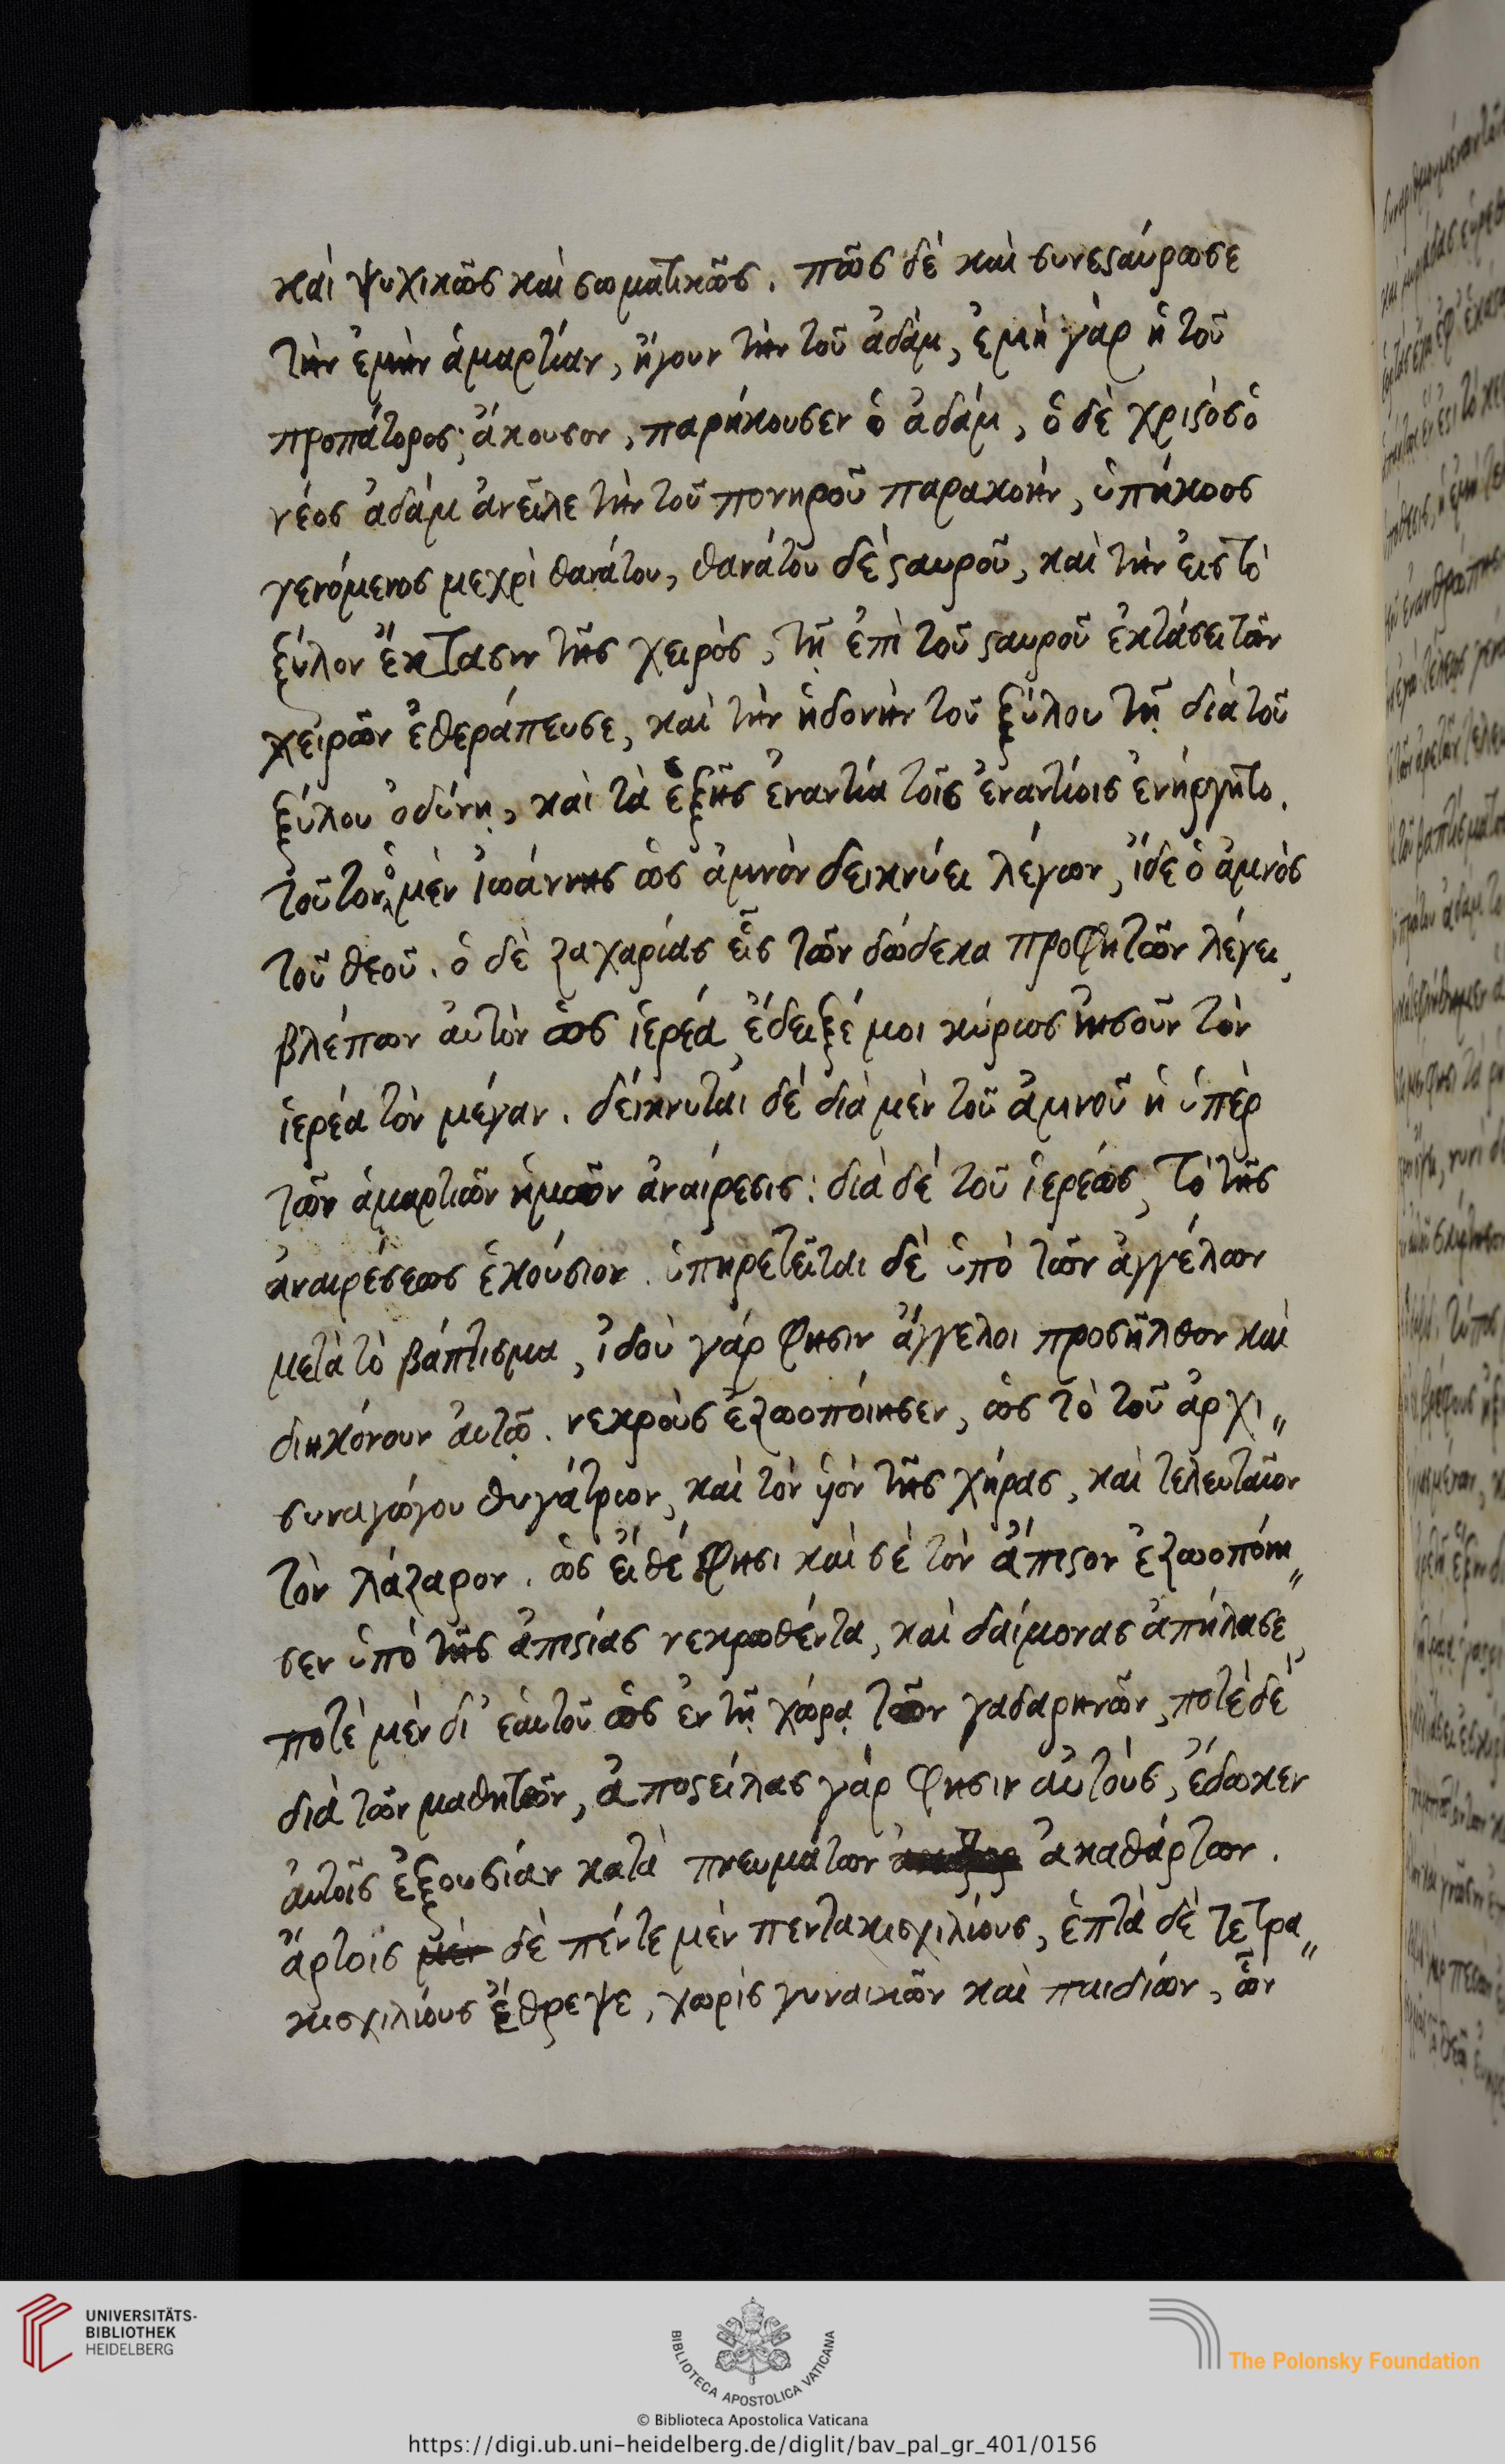 καὶ ψυχικῶς καὶ σωματικῶς. πῶς δὲ καὶ συνεϛαύρωσε
τὴν ἐμὴν ἁμαρτίαν, ἤγουν τὴν τοῦ ἀδάμ, ἐμὴ γὰρ ἡ τοῦ
προπάτορος; ἄκουσον, παρήκουσεν ὁ ἀδάμ, ὁ δὲ χριϛὸς ὁ
νέος ἀδάμ ἀνεῖλε τὴν τοῦ πονηροῦ παρακοήν, ὑπήκοος
γενόμενος μεχρὶ θανάτου, θανάτου δὲ ϛαυροῦ, καὶ τὴν εἰς τὸ
ξύλον ἔκτασιν τῆς χειρὸς, τῇ ἐπὶ τοῦ ϛαυροῦ ἐκτάσει τῶν
χειρῶν ἐθεράπευσε, καὶ τὴν ἡδονὴν τοῦ ξύλου τῇ διὰ τοῦ
ξύλου ὀδύνῃ, καὶ τὰ ἑξῆς ἐναντία τοῖς ἐναντίοις ἐνήργητο.
τοῦτον ὁ μὲν ἰωάννης ὡς ἀμνὸν δεικνύει λέγων, ἴδε ὁ ἀμνὸς
τοῦ θεοῦ. ὁ δὲ ζαχαρίας εἷς τῶν δώδεκα προφητῶν λέγει,
βλέπων αὐτὸν ὡς ἱερέα, ἔδειξέ μοι κύριος ἰησοῦν τὸν
ἱερέα τὸν μέγαν. δείκνυται δὲ διὰ μὲν τοῦ ἀμνοῦ ἡ ὑπὲρ
τῶν ἁμαρτιῶν ἡμῶν ἀναίρεσις: διὰ δὲ τοῦ ἱερέως, τὸ τῆς
ἀναιρέσεως ἑκούσιον. ὑπηρετεῖται δὲ ὑπὸ τῶν ἀγγέλων
μετὰ τὸ βάπτισμα, ἰδοὺ γάρ φησιν ἄγγελοι προσῆλθον καὶ
διηκόνουν αὐτῷ. νεκροὺς ἐζωοποίησεν, ὡς τὸ τοῦ ἀρχι„
συναγώγου θυγάτριον, καὶ τὸν ὑὸν τῆς χήρας, καὶ τελευταῖον
τὸν λάζαρον. ὡς εἴθέ φησι καὶ σὲ τὸν ἄπιϛον ἐζωοποίη„
σεν ὑπὸ τῆς ἀπιϛίας νεκρωθέντα, καὶ δαίμονας ἀπήλασε,
ποτὲ μὲν δι' ἑαυτοῦ ὡς ἐν τῇ χώρᾳ τῶν γαδαρηνῶν, ποτὲ δὲ
διὰ τῶν μαθητῶν, ἀποϛείλας γάρ φησιν αὐτοὺς, ἔδωκεν
αὐτοῖς ἐξουσίαν κατὰ πνευμάτων ἀκαθάρτων.
ἄρτοις μὲν δὲ πέντε μὲν πεντακισχιλίους, ἑπτὰ δὲ τετρα„
κισχιλίους ἔθρεψε, χωρὶς γυναικῶν καὶ παιδίων, ὧν
UNIVERSITÄTS-
BIBLIOTHEK
HEIDELBERG
BIBLIOTECA APOSTOLICA VATICANA
The Polonsky Foundation
© Biblioteca Apostolica Vaticana
https://digi.ub.uni-heidelberg.de/diglit/bav_pal_gr_401/0156